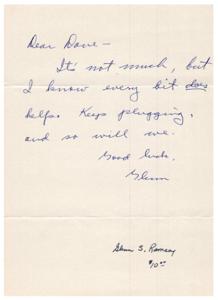 Dear Dave—
It's not much, but
I know every bit does
help. Keep plugging,
and so will we.
Good luck,
Glenn
Glenn S. Ramsey
$10.00